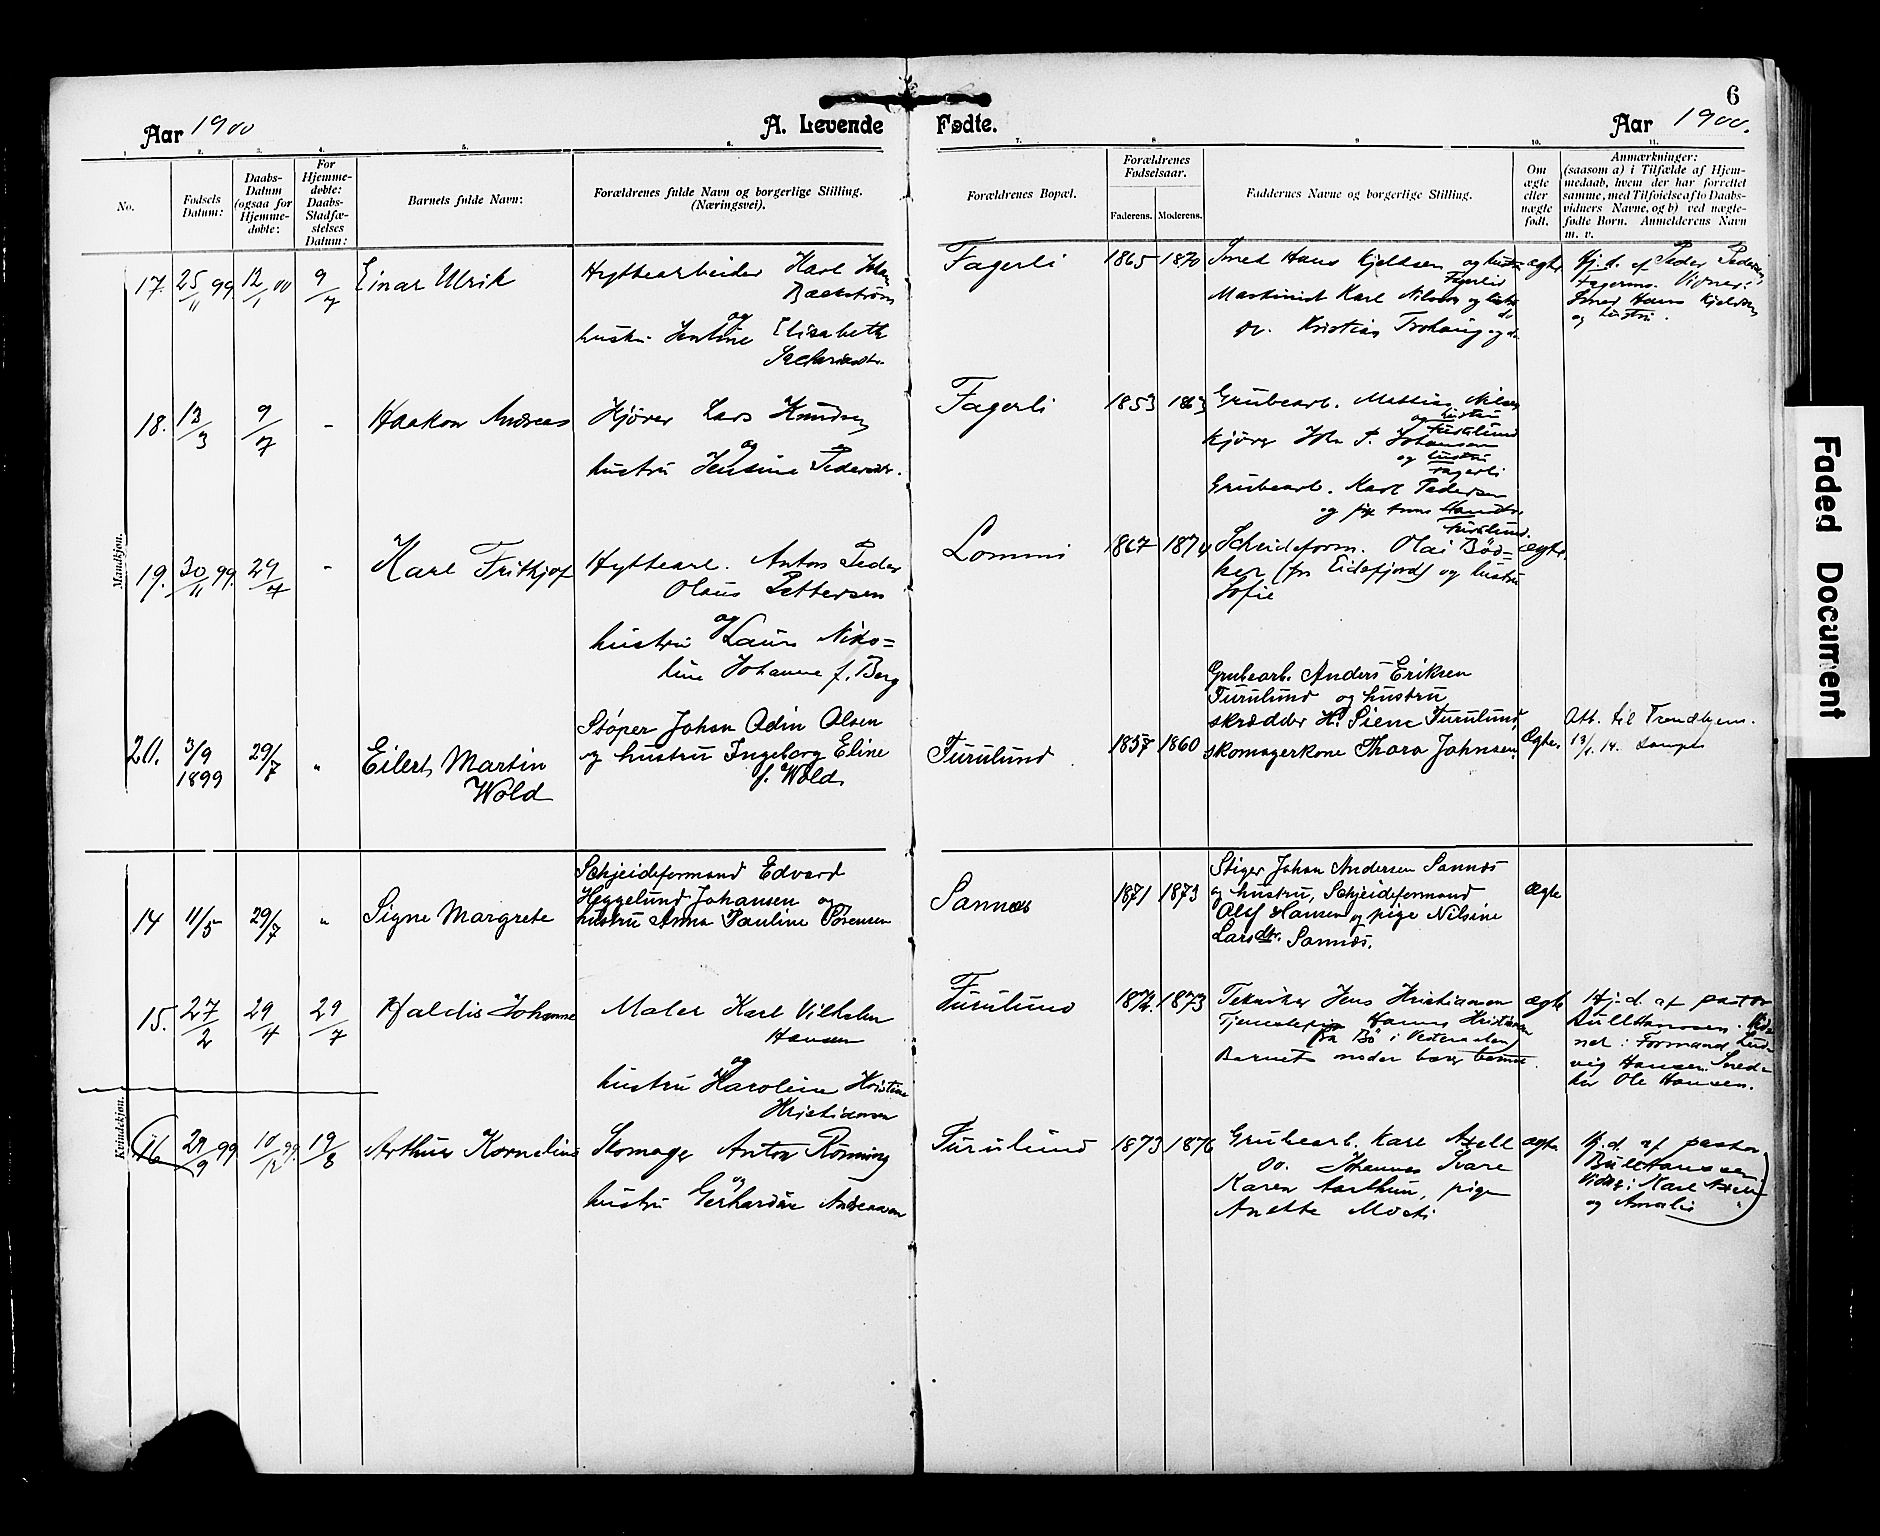 6
Aar 1900
A. Levende
Fødte.
Aar 1900.
1. 2. 3. 4. 5. 6. 7. 8. 9. 10. 11.
No.
Fødsels
Datum:
Daabs-
Datum
(ogsaa for
Hjemme-
døbte:
For
Hjemme-
døbte:
Daabs-
Stadfæ-
stelses
Datum:
Barnets fulde Navn:
Forældrenes fulde Navn og borgerlige Stilling.
(Næringsvei).
Forældrenes Bopæl.
Forældrenes
Fødselsaar.
Faderens. Moderens.
Faddernes Navne og borgerlige Stilling.
Om
ægte
eller
nægte
født.
Anmærkninger:
(saasom a) i Tilfælde af Hjem-
medaab, hvem der har forrettet
samme, med Tilføielse af to Daabs-
vidners Navne, og b) ved nægte-
fødte Børn. Anmelderens Navn
m. v.
Mandkjøn.
17. 25/11 99 12/1 00 9/7
Einar Ulrik
Hyttearbeider Karl Johan
Baekstrøm
og
hustru Elisabeth
Fagerli
1865 1870
Smed Hans Kjeldsen og hustru
Fagerli
Maskinist Karl Nilsen og hustru
do. Kristian og do
ægte
Hj. d. af Peder Pedersen
Fagermo. Vidner:
Smed Hans Kjeldsen
og hustru.
18. 13/3 9/7 -
Haakon Andreas
Kjører Lars Knudsen
og
hustru Jensine Pedersdr.
Fagerli
1853 1863
Grubearb. Mathias Nilsen
og hustru
Furulund
Kjører Joh. P. Johansen
og hustru
Fagerli
Grubearb. Karl Pedersen
og pige
Furulund.
19. 30/11 99. 29/7 "
Karl Frithjof
Hyttearb. Anton Peder
Olaus Pettersen
og
hustru Laura Niko=
line Johanne f. Berg
Lommi
1867 1874
Scheideform. Olai Bød=
ker (fra Eidefjord) og hustru
Sofie
ægte
20. 3/9 1899 29/7 "
Eilert Martin
Wold
Støper Johan Odin Olsen
og hustru Ingeborg Eline
f. Wold.
Furulund
1857 1860
Grubearb. Anders Eriksen
Furulund og hustru
skrædder H. Siene Furulund,
skomagerkone Thora Johnsen.
Ægte.
Att. til Trondhjem.
13/1. 14.
Kvindekjøn.
14 11/5 29/7 "
Signe Margrete
Schjeideformand Edvard
Heggelund Johansen og
hustru Anna Pauline Sørensen
Sannæs
1871 1873
Stiger Johan Andersen Sannæs
og hustru, Schjeideformand
Olaf Hansen og pige Nilsine
Larsdtr. Sannæs.
ægte
15. 27/2 29/4 29/7
Haldis Johanne
Maler Karl Vilhelm
Hansen
og
hustru Karoline Kristine
Kristiansen
Furulund
1872. 1873
Tekniker Jens Kristiansen
Tjenestepige Hanna Kristiansen
fra Bø i Vesteraalen
Barnets moder barnet
ægte
Hj. d. af pastor
Bull Hanssen. Vid-
ner: Formand Lud-
vig Hansen. Smed-
Ole Hansen.
16 29/9 99 10/12 99. 19/8
Arthur Kornelius
Skomager Anton Rønning
og
hustru Gerhardine Andreassen
Furulund
1873 1876
Grubearb. Karl Axell
do. Johannes Svare
Karen Aarthun, pige
Anette Moeti
ægte
Hj. d. af pastor
Bull Hanssen
Vidner: Karl Axell
og Amalie
Faded Document